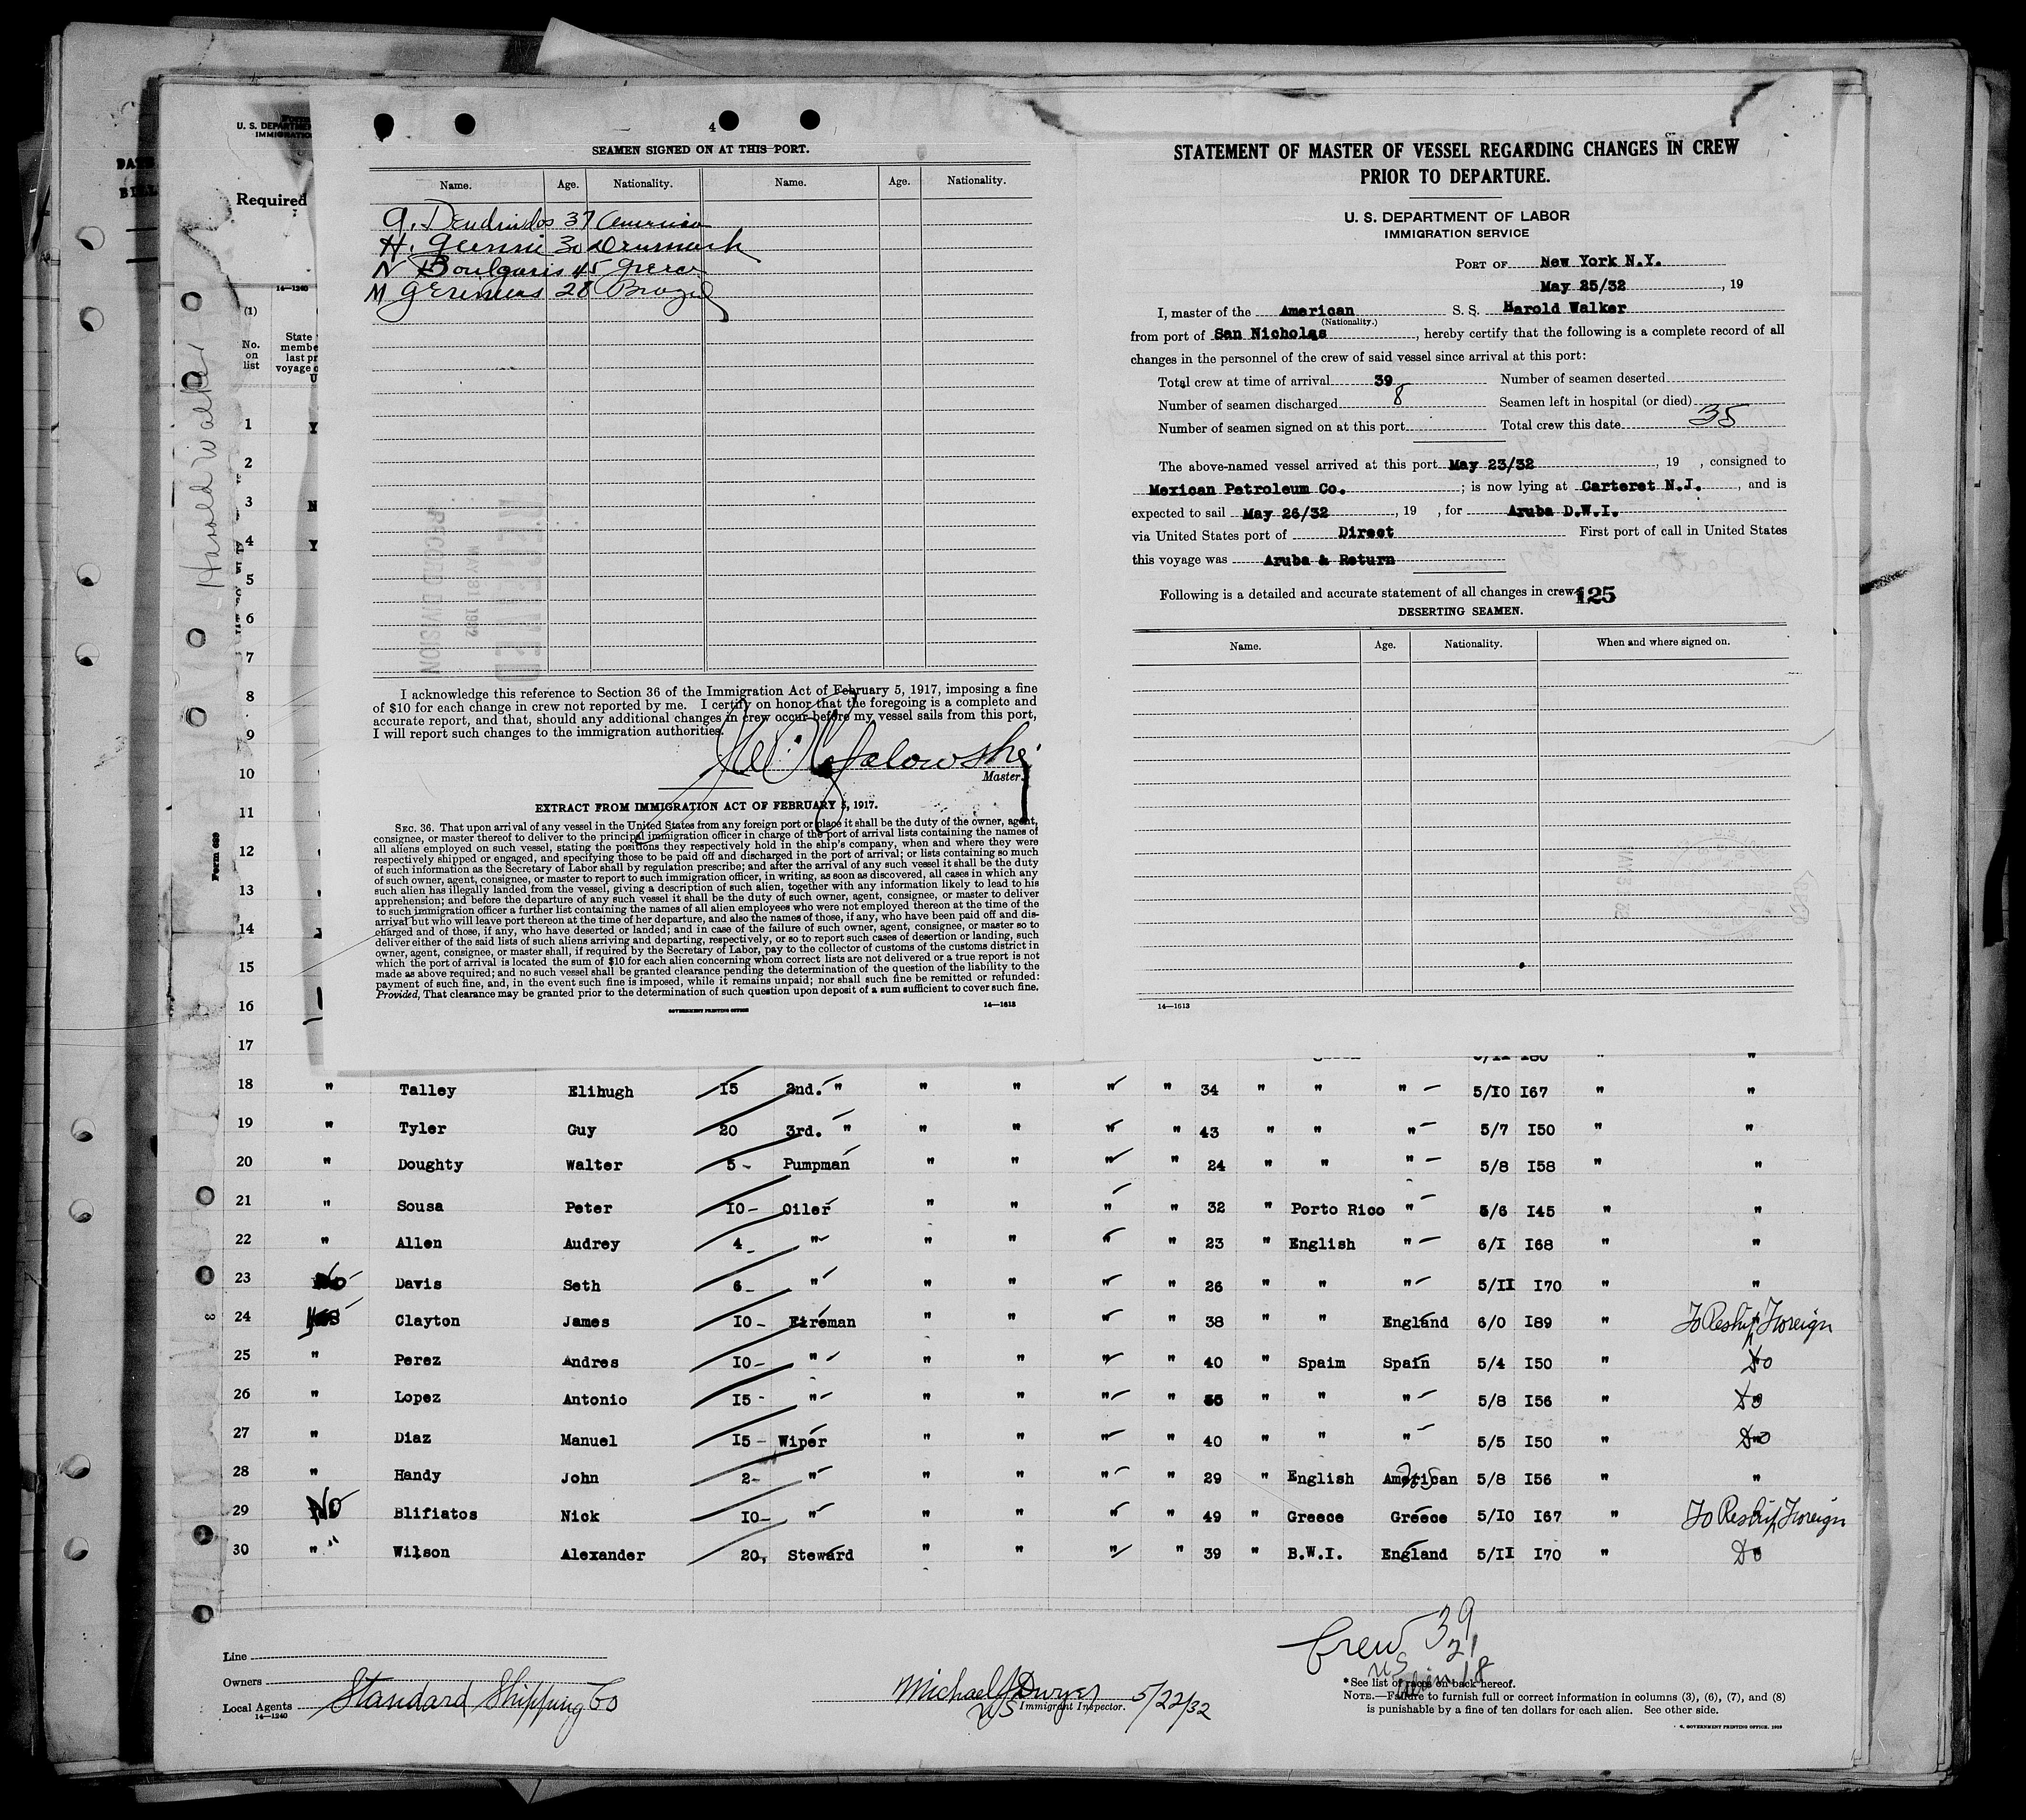 4
SEAMEN SIGNED ON AT THIS PORT.
Name. Age. Nationality. Name. Age. Nationality.
37 American
H. 30 Denmark
N Boulgaris 45 Greece
M 28 Brazil
I acknowledge this reference to Section 36 of the Immigration Act of February 5, 1917, imposing a fine
of $10 for each change in crew not reported by me. I certify on honor that the foregoing is a complete and
accurate report, and that, should any additional changes in crew occur before my vessel sails from this port,
I will report such changes to the immigration authorities.
Master.
EXTRACT FROM IMMIGRATION ACT OF FEBRUARY 5, 1917.
SEC. 36. That upon arrival of any vessel in the United States from any foreign port or place it shall be the duty of the owner, agent,
consignee, or master thereof to deliver to the principal immigration officer in charge of the port of arrival lists containing the names of
all aliens employed on such vessel, stating the positions they respectively hold in the ship's company, when and where they were
respectively shipped or engaged, and specifying those to be paid off and discharged in the port of arrival; or lists containing so much
of such information as the Secretary of Labor shall by regulation prescribe; and after the arrival of any such vessel it shall be the duty
of such owner, agent, consignee, or master to report to such immigration officer, in writing, as soon as discovered, all cases in which any
such alien has illegally landed from the vessel, giving a description of such alien, together with any information likely to lead to his
apprehension; and before the departure of any such vessel it shall be the duty of such owner, agent, consignee, or master to deliver
to such immigration officer a further list containing the names of all alien employees who were not employed thereon at the time of the
arrival but who will leave port thereon at the time of her departure, and also the names of those, if any, who have been paid off and dis-
charged and of those, if any, who have deserted or landed; and in case of the failure of such owner, agent, consignee, or master so to
deliver either of the said lists of such aliens arriving and departing, respectively, or so to report such cases of desertion or landing, such
owner, agent, consignee, or master shall, if required by the Secretary of Labor, pay to the collector of customs of the customs district in
which the port of arrival is located the sum of $10 for each alien concerning whom correct lists are not delivered or a true report is not
made as above required; and no such vessel shall be granted clearance pending the determination of the question of the liability to the
payment of such fine, and, in the event such fine is imposed, while it remains unpaid; nor shall such fine be remitted or refunded:
Provided, That clearance may be granted prior to the determination of such question upon deposit of a sum sufficient to cover such fine.
GOVERNMENT PRINTING OFFICE 14—1613
RECEIVED
MAY 31 1932
RECORD DIVISION
STATEMENT OF MASTER OF VESSEL REGARDING CHANGES IN CREW
PRIOR TO DEPARTURE.
U. S. DEPARTMENT OF LABOR
IMMIGRATION SERVICE
PORT OF New York N.Y.
May 25/32, 19
I, master of the American S. S. Harold Walker
(Nationality.)
from port of San Nicholas, hereby certify that the following is a complete record of all
changes in the personnel of the crew of said vessel since arrival at this port:
Total crew at time of arrival 39 Number of seamen deserted
Number of seamen discharged 8 Seamen left in hospital (or died)
Number of seamen signed on at this port Total crew this date 35
The above-named vessel arrived at this port May 23/32, 19 , consigned to
Mexican Petroleum Co. ; is now lying at Carteret N.J. , and is
expected to sail May 26/32, 19 , for Aruba D.W.I.
via United States port of Direct First port of call in United States
this voyage was Aruba & Return
Following is a detailed and accurate statement of all changes in crew:
125
DESERTING SEAMEN.
Name. Age. Nationality. When and where signed on.
14—1613
U. S. DEPARTMENT
IMMIGRATION
Required
14—1240
(1)
No.
on
list
Harold Walker
Form 689
1 Y
2
3 N
4 Y
5
6
7
8
9
10
11
12
13
14
15
16
17
18 " Talley Elihugh 15 2nd. " " " " " 34 " " " 5/10 167 " "
19 " Tyler Guy 20 3rd. " " " " " 43 " " " 5/7 150 " "
20 " Doughty Walter 5 Pumpman " " " " 24 " " " 5/8 158 " "
21 " Sousa Peter 10 Oiler " " " " 32 " Porto Rico " 5/6 145 " "
22 " Allen Audrey 4 " " " " " 23 " English " 6/1 168 " "
23 No Davis Seth 6 " " " " " 26 " " " 5/11 170 " "
24 Yes Clayton James 10 Fireman " " " " 38 " " England 6/0 189 " To Reship Foreign
25 " Perez Andres 10 " " " " " 40 " Spaim Spain 5/4 150 " Do
26 " Lopez Antonio 15 " " " " " " " " 5/8 156 " Do
27 " Diaz Manuel 15 Wiper " " " " 40 " " " 5/5 150 " Do
28 " Handy John 2 " " " " " 29 " English American 5/8 156 " "
29 No Blifiatos Nick 10 " " " " " 49 " Greece Greece 5/10 167 " To Reship Foreign
30 " Wilson Alexander 20 Steward " " " " 39 " B.W.I. England 5/11 170 " Do
Crew 39
US 21
Alien 18
Line
Owners
Local Agents Standard Shipping Co
14—1240
Michael J Dwyer 5/22/32
US Immigrant Inspector.
*See list of races on back hereof.
NOTE.—Failure to furnish full or correct information in columns (3), (6), (7), and (8)
is punishable by a fine of ten dollars for each alien. See other side.
U. S. GOVERNMENT PRINTING OFFICE. 1929